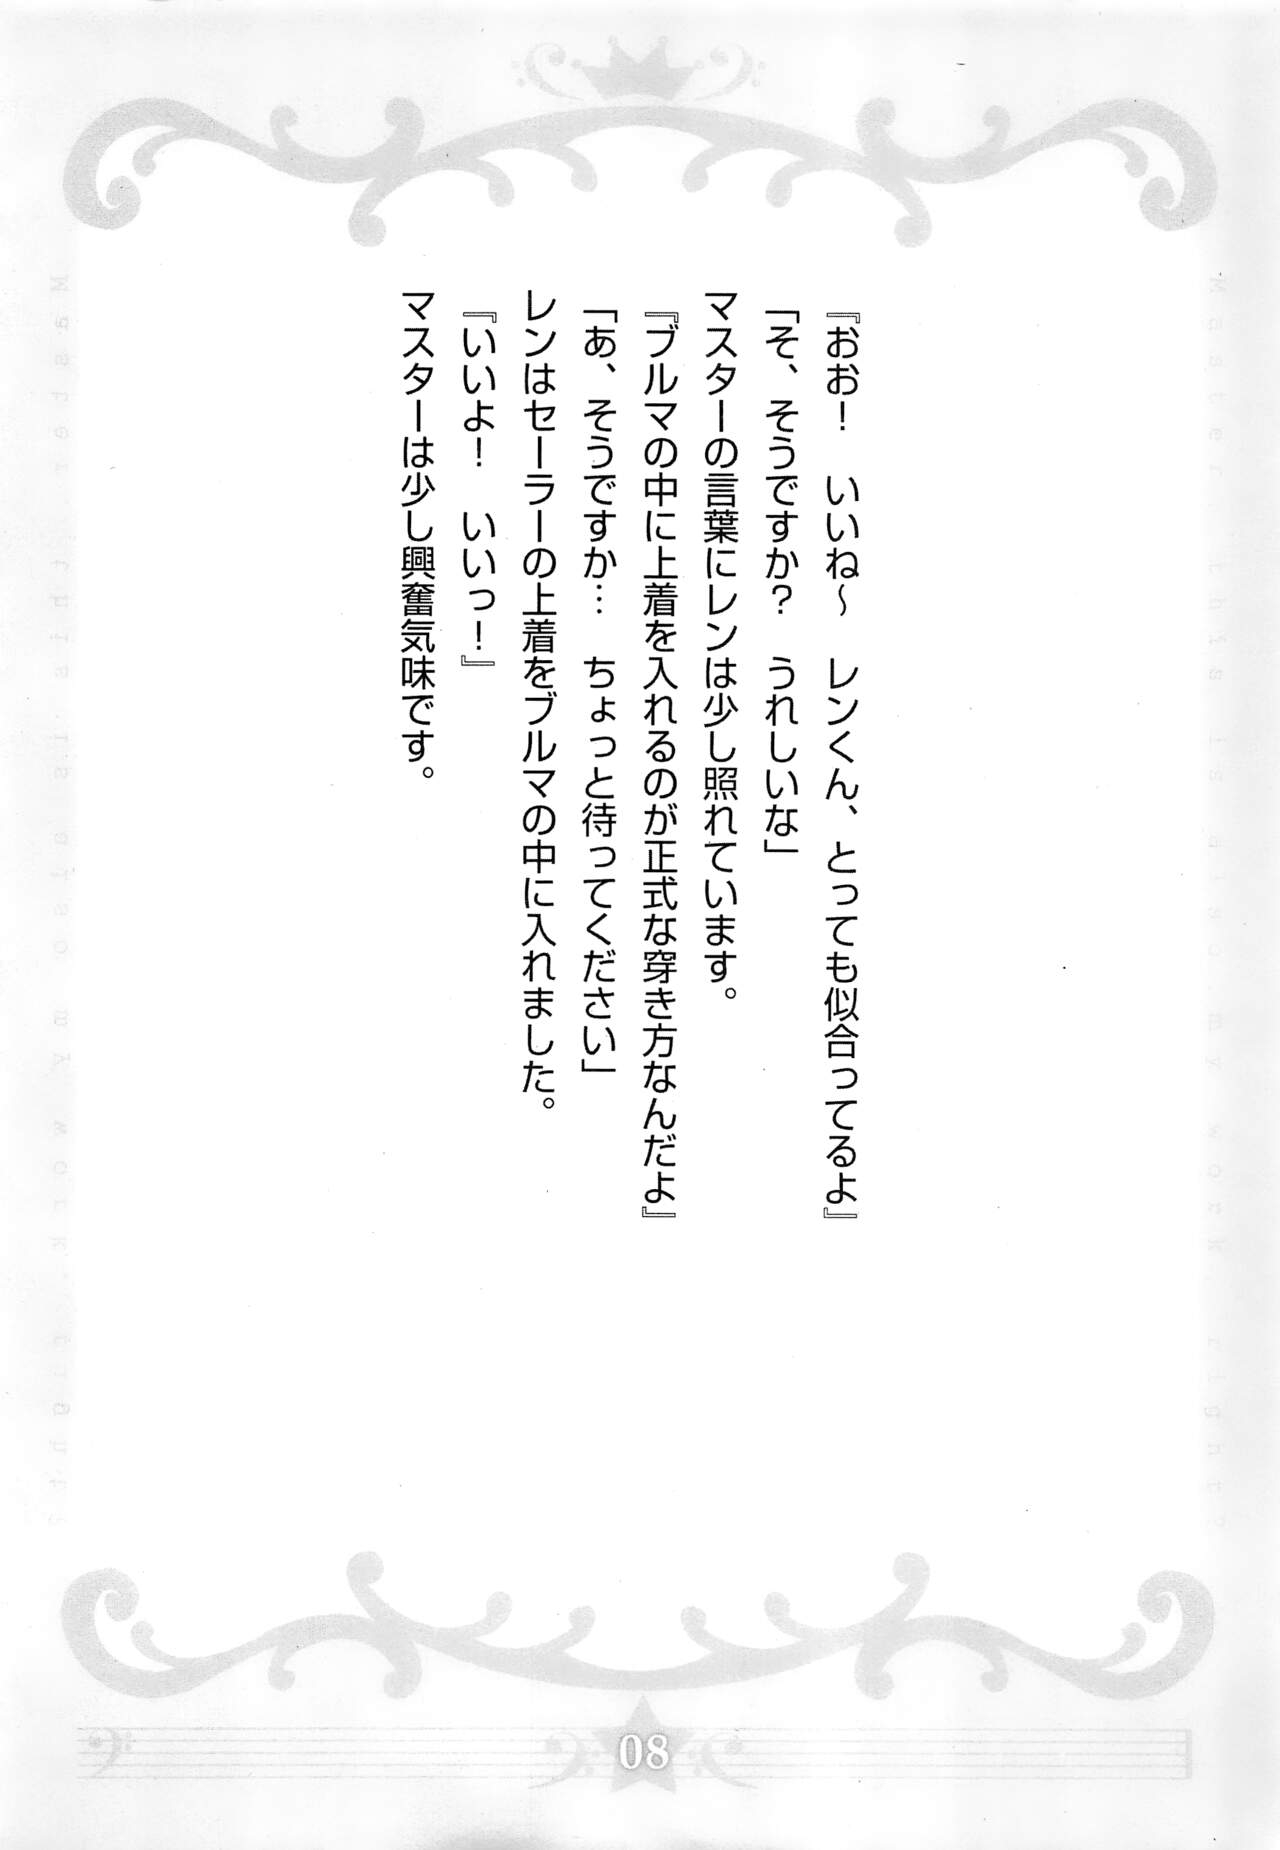 『おお！　いいね～　レンくん、とっても似合ってるよ』
「そ、そうですか？　うれしいな」
マスターの言葉にレンは少し照れています。
『ブルマの中に上着を入れるのが正式な穿き方なんだよ』
「あ、そうですか…　ちょっと待ってください」
レンはセーラーの上着をブルマの中に入れました。
『いいよ！　いいっ！』
マスターは少し興奮気味です。
Master, this is also my work, right?
Master, this is also my work, right?
08